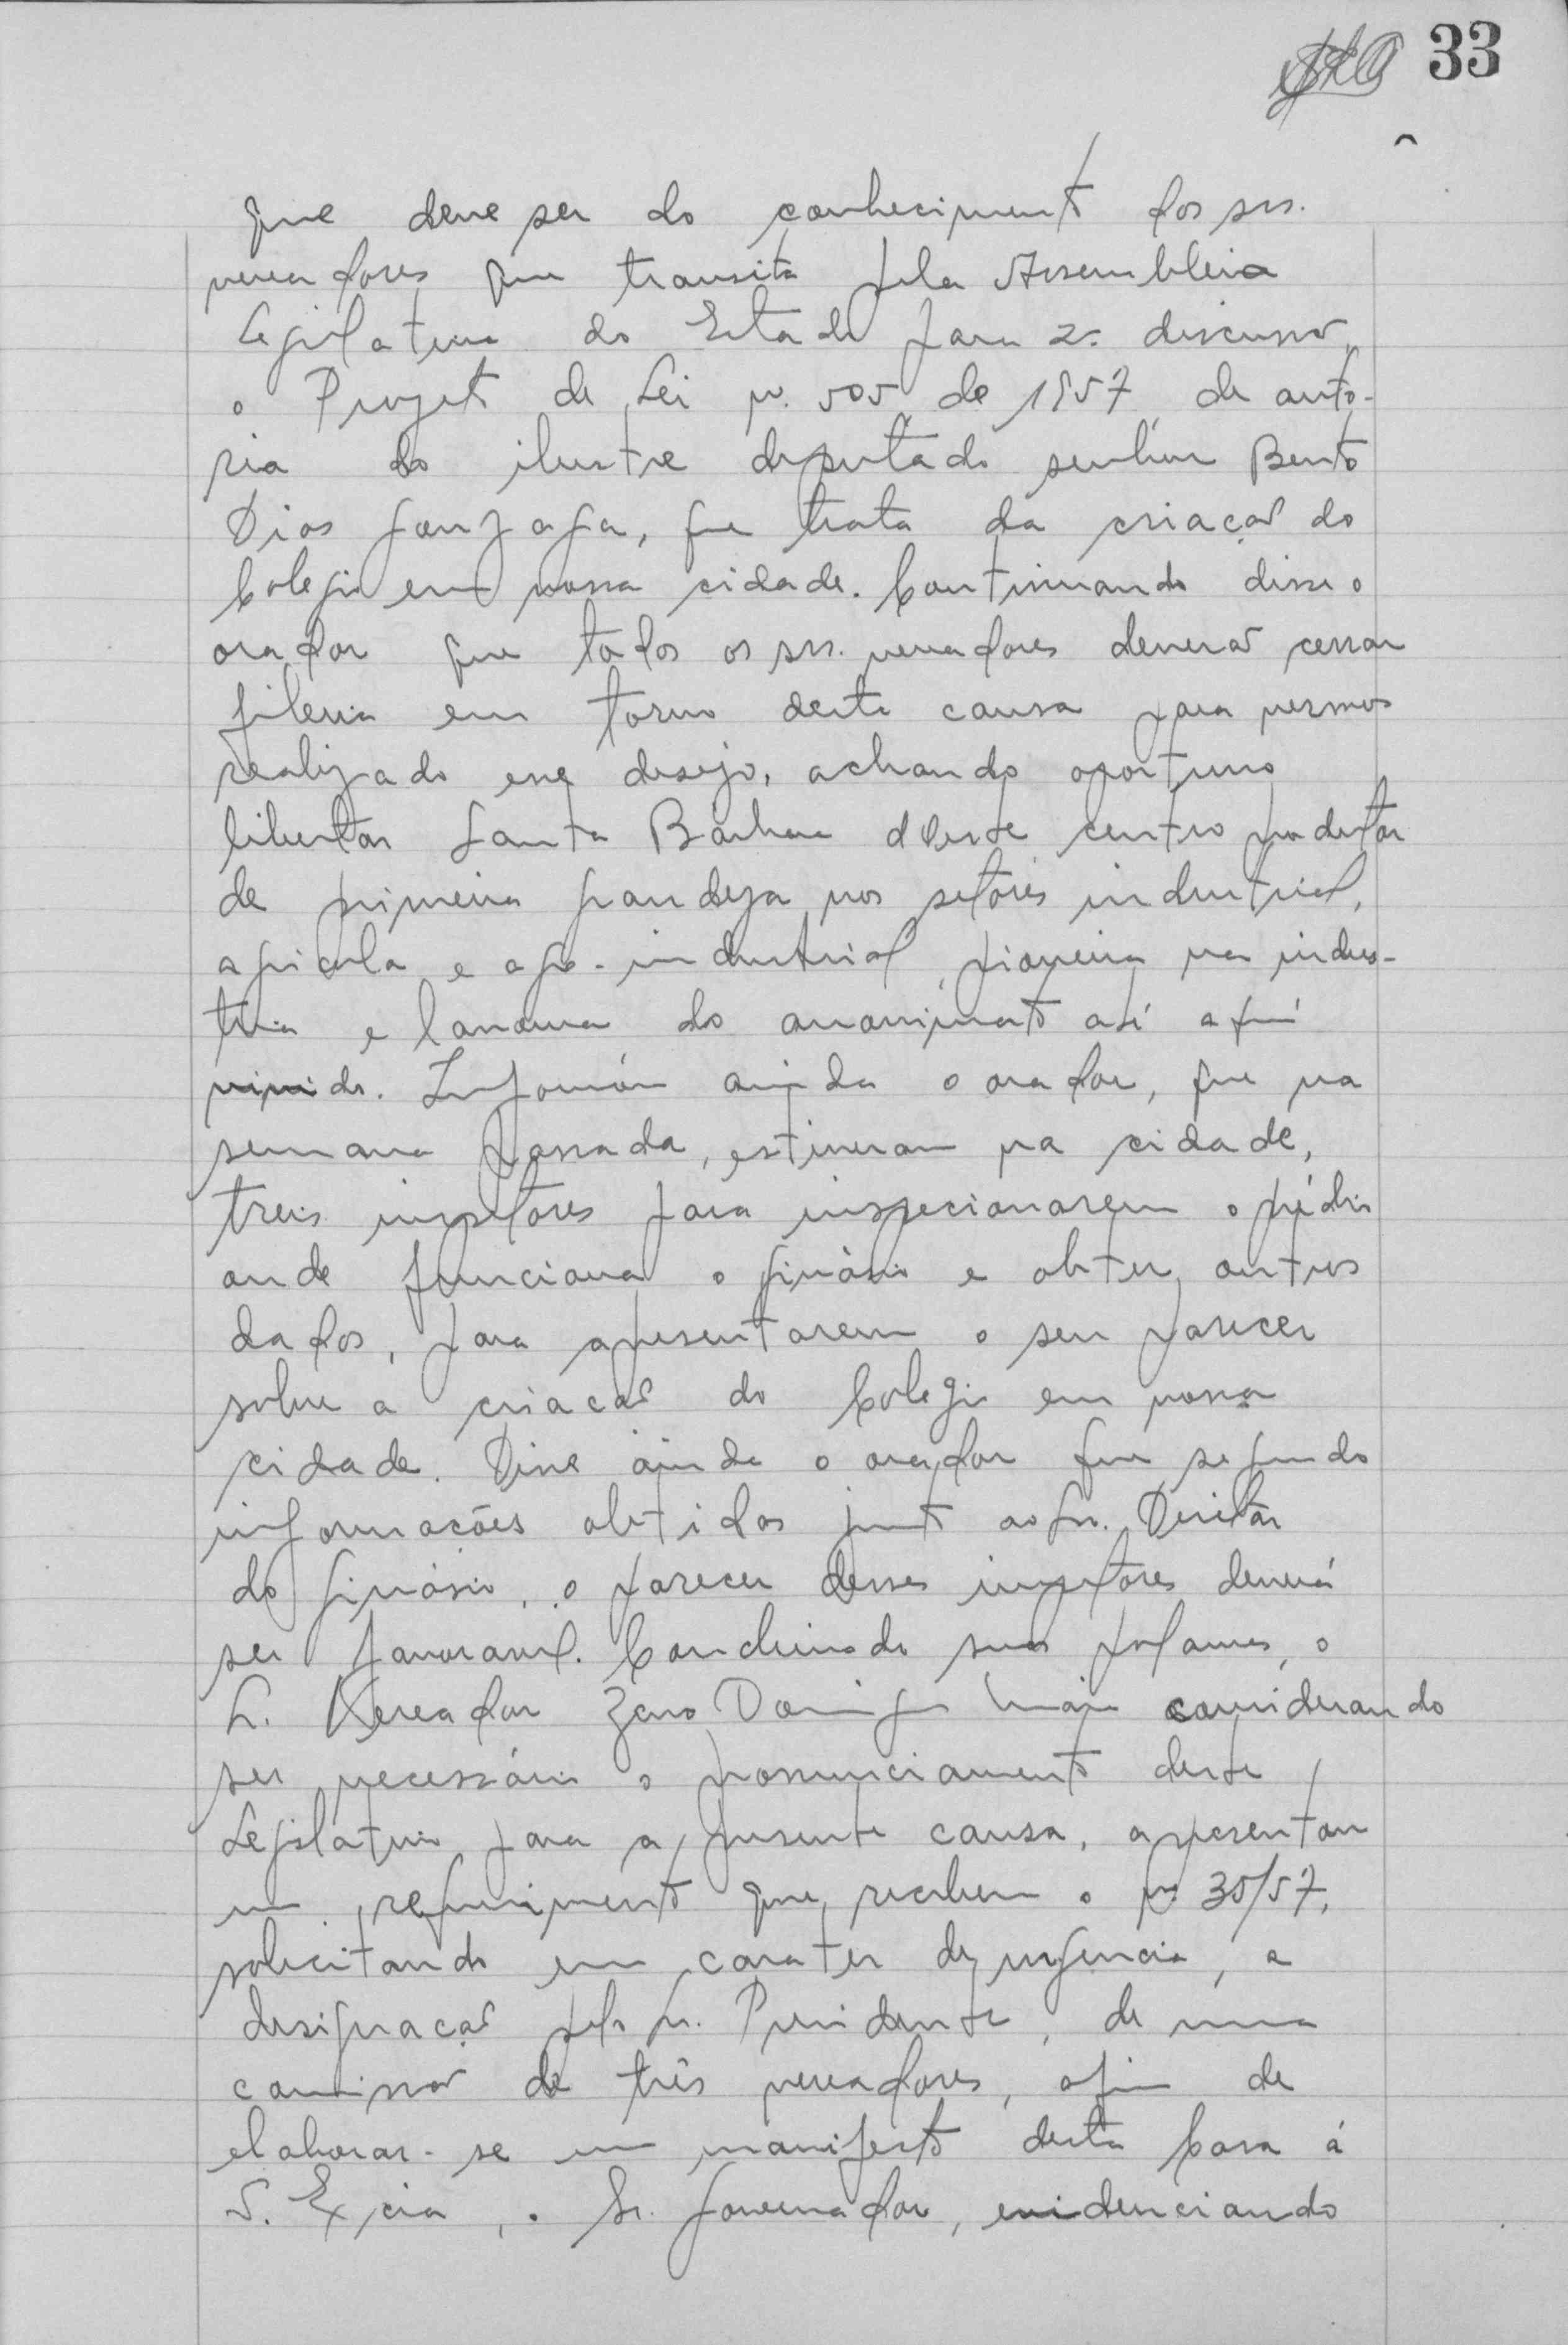 33
que deve ser do conhecimento dos srs.
vereadores que transita pela Assembleia
Legislativa do Estado para 2ª discussão,
o Projeto de Lei nº. 505 de 1957, de auto-
ria do ilustre deputado senhor Bento
Dias Gonzaga, que trata da criação do
Colegio em nossa cidade. Continuando disse o
orador que todos os srs. vereadores deverão cerrar
fileira em torno desta causa para vermos
realizado esse desejo, achando oportuno
libertar Santa Barbara dêste centro produtor
de primeira grandeza nos setores industrial,
agricola e agro-industrial, pioneira na indus-
tria e lavoura do anonimato até aqui
vivido. Informou ainda o orador, que na
semana passada, estiveram na cidade,
treis inspetores para inspecionarem o prédio
onde funciona o ginásio e obter outros
dados, para apresentarem o seu parecer
sobre a criacão do Colegio em nossa
cidade. Disse ainda o orador que segundo
informações obtidas junto ao sr. Diretor
do ginásio, o parecer desses inspetores deverá
ser favoravel. Concluindo suas palavras, o
Sr. Vereador Zeno Domingos Maia considerando
ser necessário o pronunciamento deste
Legislativo para a presente causa, apresentou
um requerimento que recebeu o nº 35/57,
solicitando em carater de urgencia, a
designacão pelo sr. Presidente, de uma
comissão de três vereadores, afim de
elaborar-se um manifesto desta Casa á
S. Excia, o Sr. Governador, evidenciando